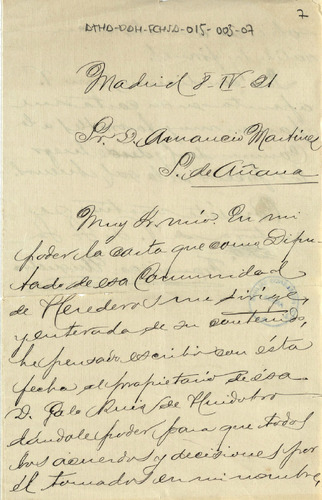 7
ATHA-DAH-FCHSA-015-005-07
Madrid 8-IV 21
Sr. D. Amancio Martinez
S. de Añana
Muy Sr. mío. En mi
poder la carta que como Dipu-
tado de esa Comunidad
de Herederos me dirige,
y enterada de su contenido,
he pensado escribir con ésta
fecha al propietario de ésa
D. Galo Ruiz de Huidobro
dándole poder, para que todos
los acuerdos y decisiones por
él tomados en mi nombre,